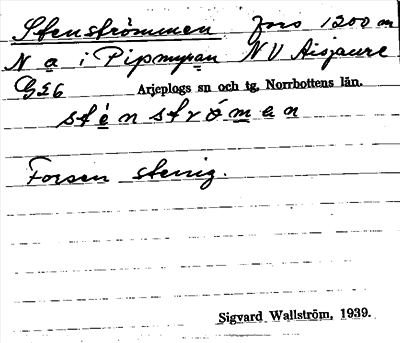 Stenströmmen fors 1200 m
N a i Pipmyran NV Aisjaure
G5E6 Arjeplogs sn och tg, Norrbottens län.
sténströ́man
Forsen stenig.
Sigvard Wallström, 1939.